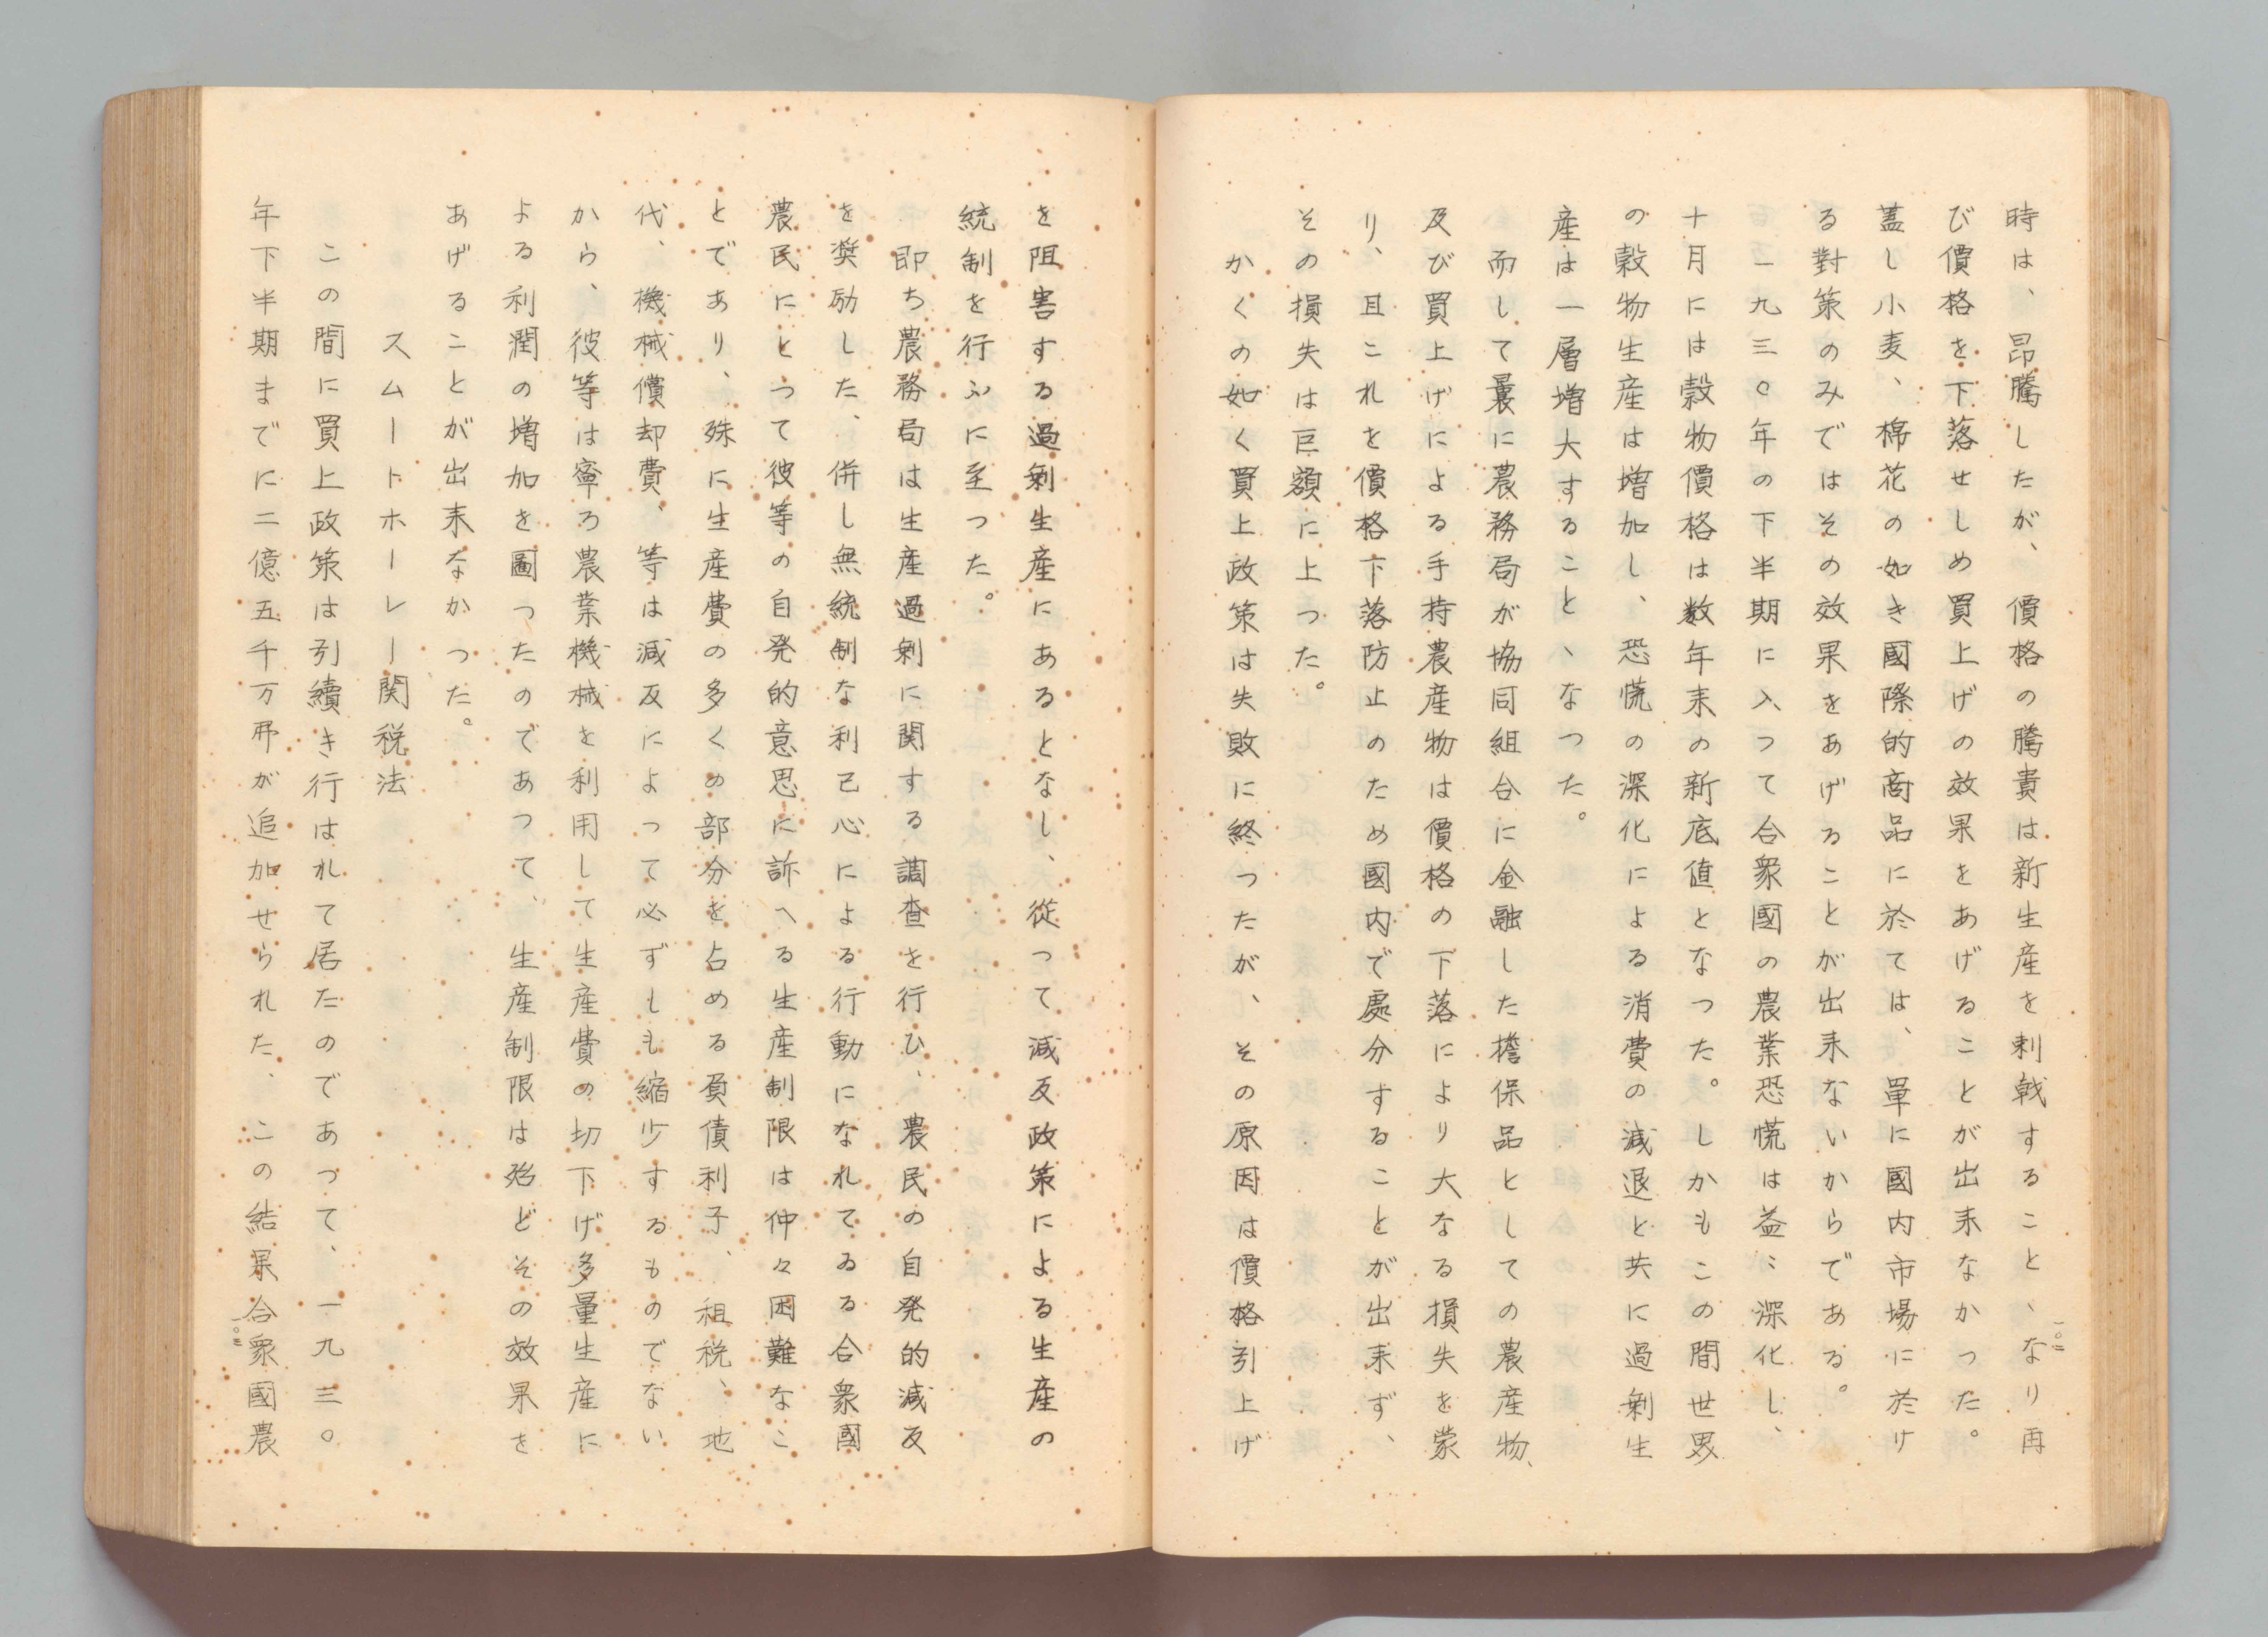 時は、昂騰したが、價格の騰貴は新生産を刺戟すること、なり再
び價格を下落せしめ買上げの效果をあげることが出来なかった。
蓋し小麦、棉花の如き國際的商品に於ては、單に國内市場に於け
る對策のみではその效果をあげることが出来ないからである。
一九三〇年の下半期に入つて合衆國の農業恐慌は益〻深化し、
十月には穀物價格は数年来の新底値となつた。しかもこの間世界
の穀物生産は増加し、恐慌の深化による消費の減退と共に過剰生
産は一層増大すること、なつた。
而して曩に農務局が協同組合に金融した擔保品としての農産物、
及び買上げによる手持農産物は價格の下落により大なる損失を蒙
り、且これを價格下落防止のため國内で處分することが出来ず、
その損失は巨額に上つた。
かくの如く買上政策は失敗に終つたが、その原因は價格引上げ
一〇二
を阻害する過剰生産にあるとなし、從つて減反政策による生産の
統制を行ふに至つた。
即ち農務局は生産過剰に関する調査を行ひ、農民の自発的減反
を奨励した、併し無統制な利己心による行動になれてゐる合衆國
農民にとつて彼等の自発的意思に訴へる生産制限は仲々困難なこ
とであり、殊に生産費の多くの部分を占める負債利子、租税、地
代、機械償却費、等は減反によつて必ずしも縮少するものでない
から、彼等は寧ろ農業機械を利用して生産費の切下げ多量生産に
よる利潤の増加を圖つたのであつて、生産制限は殆どその效果を
あげることが出来なかつた。
スムートホーレー関税法
この間に買上政策は引續き行はれて居たのであつて、一九三〇
年下半期までに二億五千万弗が追加せられた、この結果合衆國農
一〇三